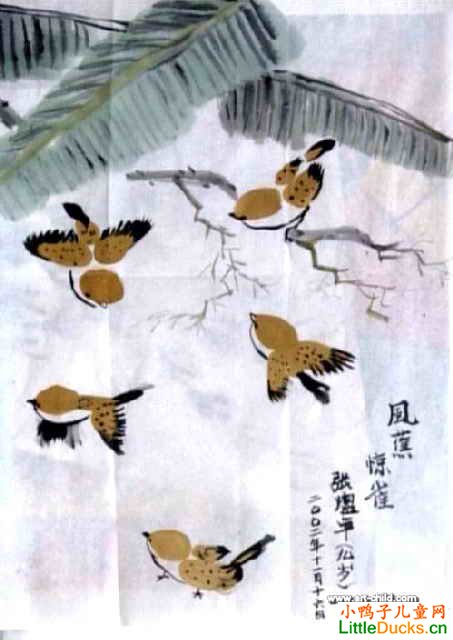 风蕉
惊雀
张墟平(公岁)
二〇〇二年十一月十六日
www.art-child.com
小鸭子儿童网
LittleDucks.cn